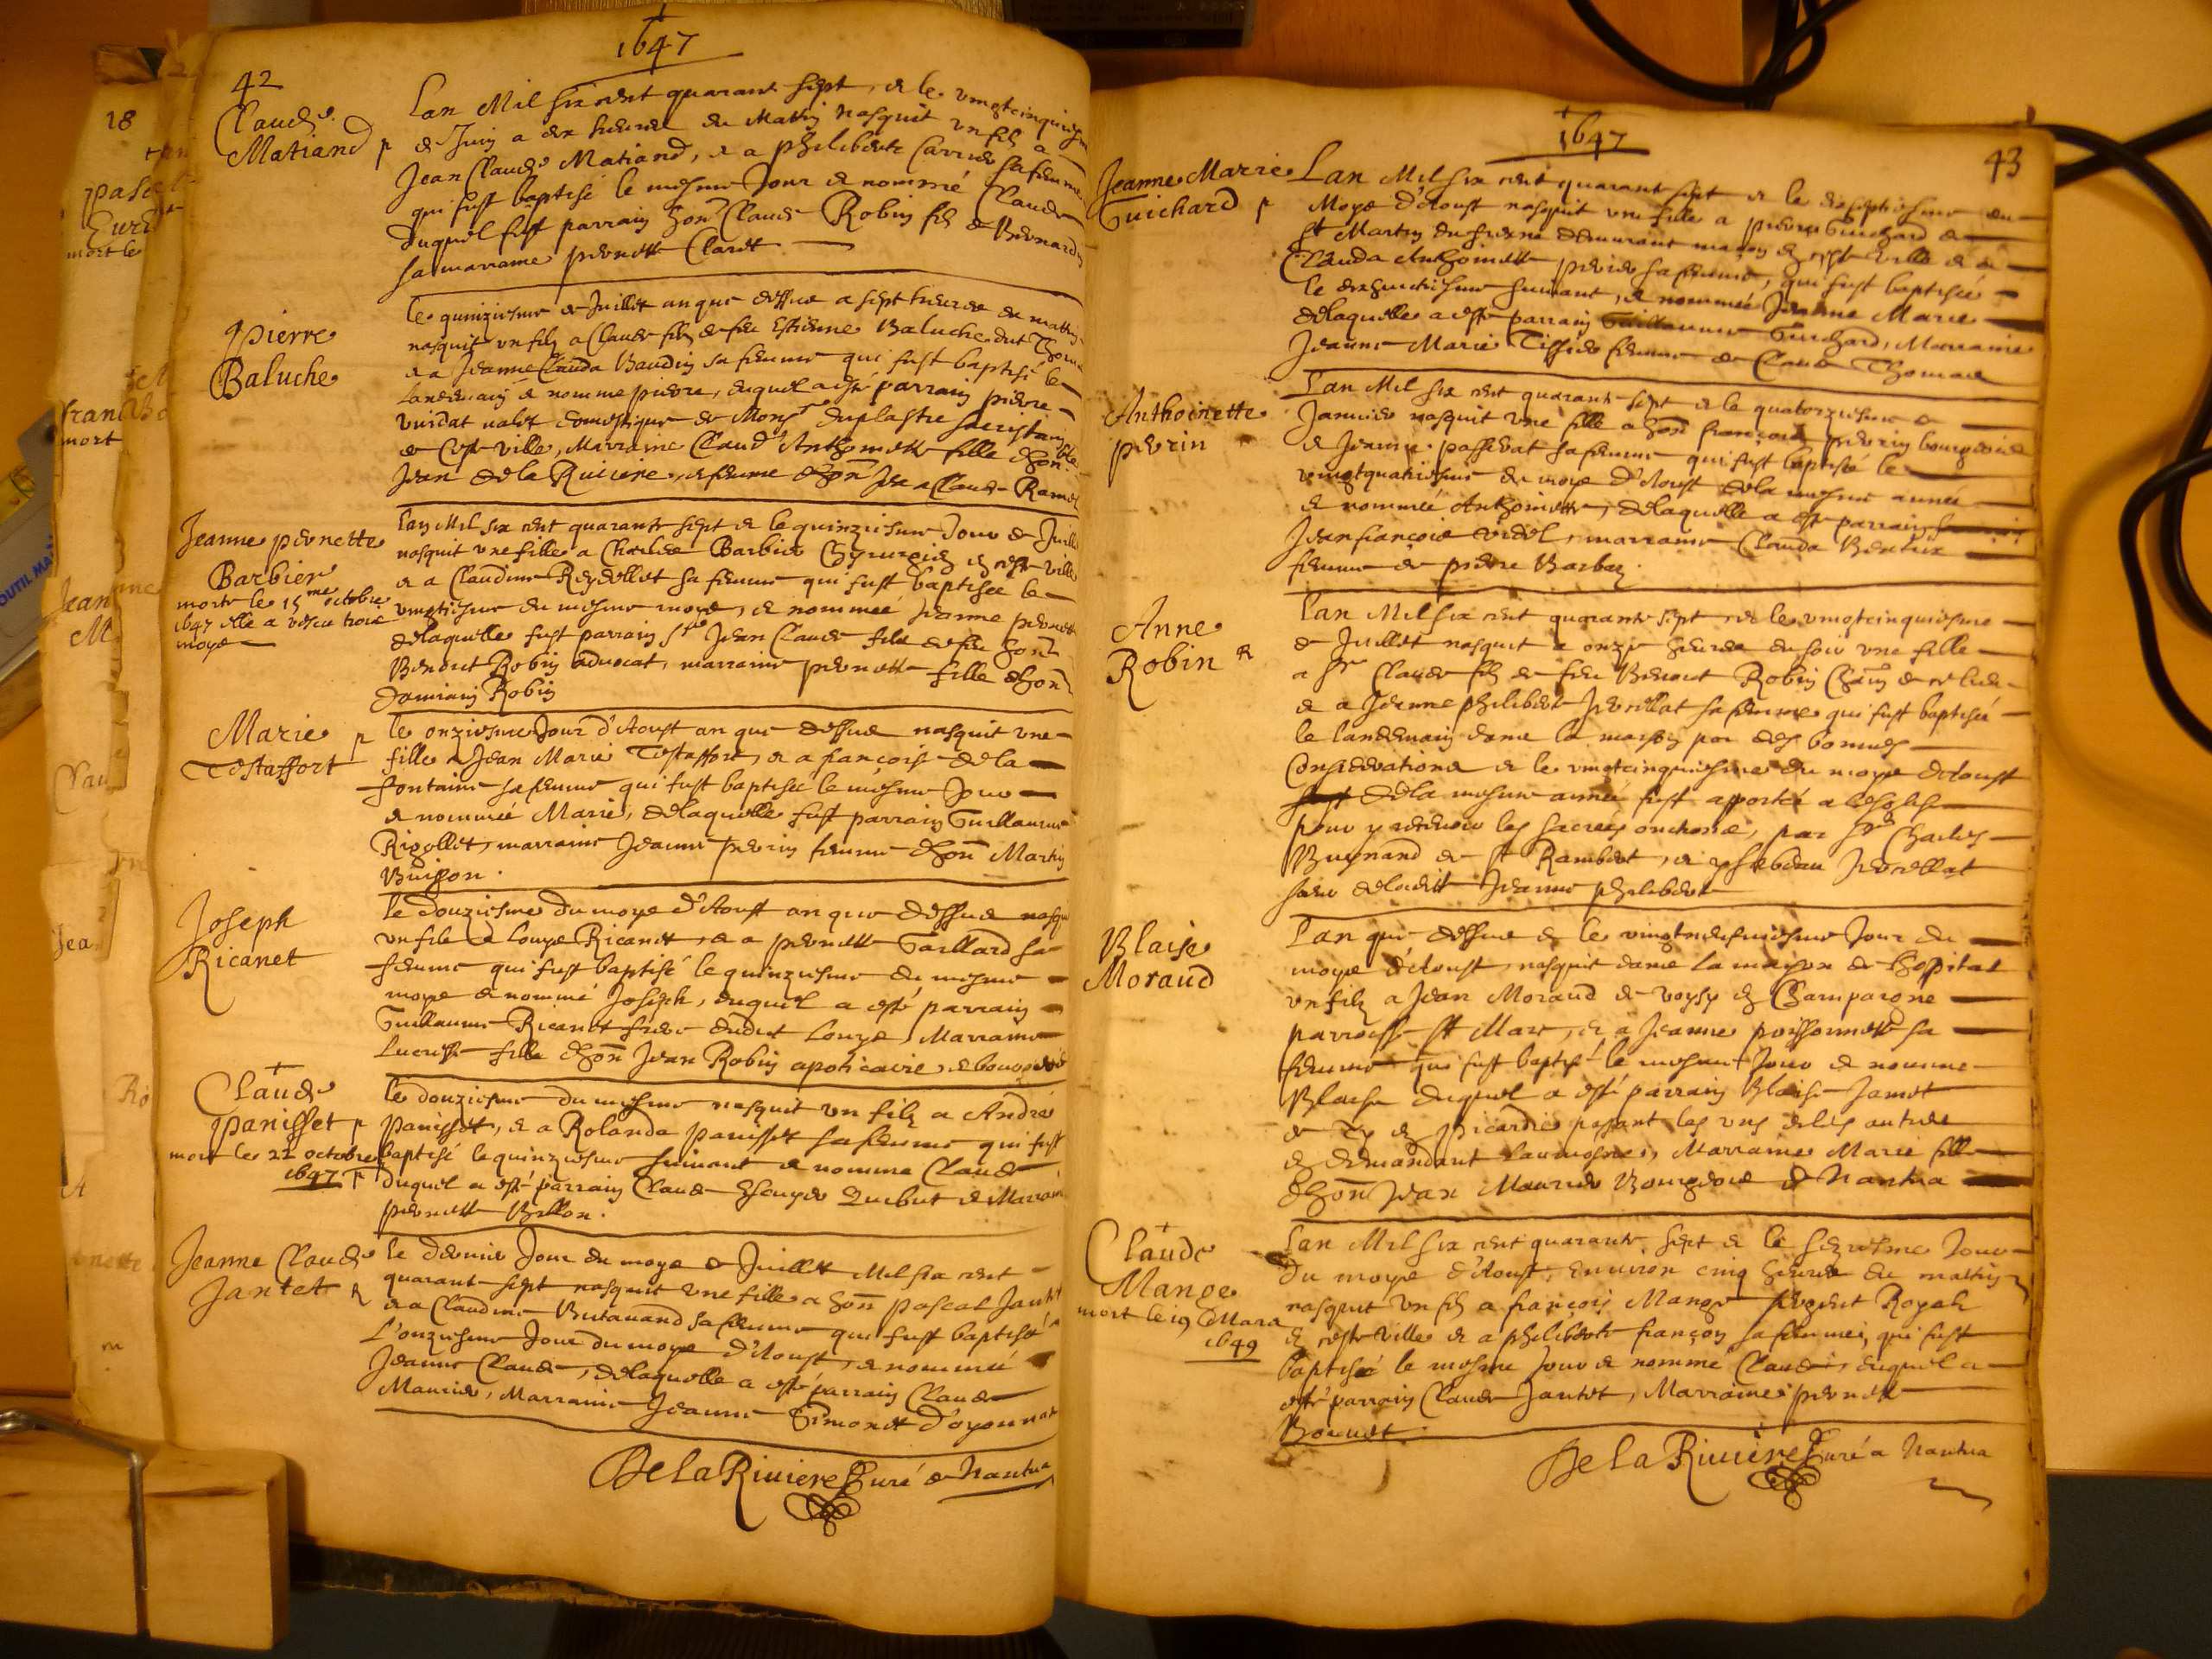 1647
42
Claude
Matiand p
Lan Mil six cent quarante sept, & le vingtcinquiesme
de Juin a dix heures du Matin nasquit un filz a
Jean Claude Matiand, & a philiberte Carrier sa femme
qui fust baptisé le mesme Jour & nommé Claude
duquel fust parrain hon Claude Robin filz de Bernardin
sa marraine pernette Claret
pierre
Baluche
le quinziesme de Juillet an que dessus a sept heures du matin
nasquit un filz a Claude filz de feu Estienne Baluche
& a Jeanne Clauda Baudin sa femme qui fust baptisé le
landemain & nomme pierre, duquel a esté parrain pierre
vuidat valet domestique de Mons duplastre sacristain
de Ceste ville, Marraine Claud' Anthoinette fille d'hon
Jean de la Riviere, & femme d'hon Jean Claude Ramel
Jeanne pernette
Barbier
morte le 15me octobre
1647 elle a vescu trois
moys
Lan Mil six cent quarante sept & le quinziesme Jour de Juillet
nasquit une fille a Charles Barbier Chyrurgie en ceste ville
& a Claudine Reydellet sa femme qui fust baptisee le
vingtiesme du mesme moys, & nommeé Jeanne pernette
delaquelle fust parrain Sr Jean Claude filz de feu hon
Benoict Robin advocat, marraine pernette fille d'hon
Damian Robin
Marie p
Testaffort
le onziesme Jour d'Aoust an que dessus nasquit une
fille a Jean Marie Testaffort, & a françoise de la
fontaine sa femme qui fust baptisée le mesme Jour
& nommée Marie, delaquelle fust parrain Guillaume
Rigollet, marraine Jeanne perrin femme d'hon Martin
Buisson.
Joseph
Ricanet
le douziesme du moys d'Aoust an que dessus nasquit
un filz a Louys Ricanet, & a pernette Gaillard sa
femme qui fust baptisé le quinziesme du mesme
moys & nommé Joseph, duquel a esté parrain
Guillaume Ricanet frere dudict Louys, Marraine
Lucresse fille d'hon Jean Robin apoticaire, & bourgeois
Claude
panisset p
mort le 22 octobre
1647
le douziesme du mesme nasquit un filz a André
panisset, & a Rolanda panisset sa femme qui fust
baptisé le quinziesme suivant & nomme Claude
duquel a esté parrain Claude Escuyer & Marraine
pernette Billon.
Jeanne Claude
Jantet
le dernier Jour du moys de Juillet Mil six cent
quarante sept nasquit une fille a hon pascal Jantet
& a Claudine Butavand sa femme qui fust baptisée
L'onziesme Jour du moys d'Aoust, & nommée
Jeanne Claude, delaquelle a esté parrain Claude
Maurier, Marraine Jeanne Simonet d'oyonnax
De la Riviere Curé de Nantua
1647
43
Jeanne Marie
Guichard p
Lan Mil six cent quarante sept & le dixseptiesme du
Moys d'Aoust nasquit une fille a pierre Guichard de
St Martin du fresne demeurant en ceste ville & a
Clauda Anthoinette sa femme, qui fust baptisée
le dixhuictiesme suivant, & nommée Jeanne Marie
delaquelle a esté parrain Guillaume Guichard, Marraine
Jeanne Marie Tissier femme de Claude Thomas
Anthoinette
perrin
Lan Mil six cent quarante sept & le quatorziesme de
Janvier nasquit une fille a hon françois perrin bourgeois
& Jeanne passerat sa femme qui fust baptisée le
vingtquatriesme du moys d'Aoust dela mesme année
& nommée Anthoinette, delaquelle a esté parrain
Jean françois vidal, marraine Clauda
femme de pierre Barbaz.
Anne
Robin
Lan Mil six cent quarante sept, & le vingtcinquiesme
de Juillet nasquit a onze heures du soir une fille
a Sr Claude filz de feu Benoict Robin
& a Jeanne philiberte Jurillat sa femme qui fust baptisée
le landemain dans la maison par des bonnes
Considerations & le vingtcinquiesme du moys d'Aoust
dela mesme année fust apportée a lesglise
pour y recevoir les sacrees onctions, par Sr Charles
Bugnand de St Rambert, &
soeur deladitte Jeanne philiberte
Blaise
Moraud
Lan que dessus & le vingtneufviesme Jour du
moys d'Aoust, nasquit dans la maison de l'hospital
un filz a Jean Moraud de voysy en Champagne
parroisse St Marc, & a Jeanne poissonnette sa
femme qui fust baptisé le mesme Jour & nomme
Blaise duquel a esté parrain Blaise Jamet
de en picardie passant les uns & les autres
& demandant laumosne, Marraine Marie fille
d'hon Jean Maurier Bourgeois de Nantua
Claude
Mange
mort le 19 Mars
1649
Lan Mil six cent quarante sept & le seziesme Jour
du moys d'Aoust, environ cinq heures du mattin
nasquit un filz a françois Mange sergent Royal
en ceste ville & a philiberte françon sa femme, qui fust
baptisé le mesme Jour & nommé Claude, duquel a
esté parrain Claude Jantet, Marraine pernette
Bonnet
De la Riviere Curé a Nantua